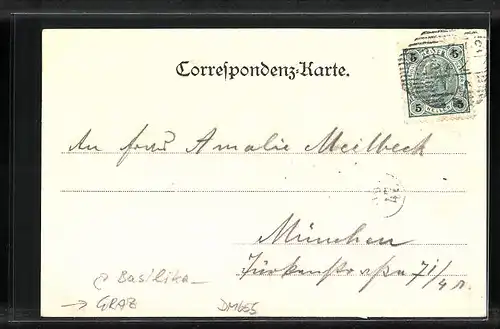 Correspondenz-Karte.
5 5
5 5
An Frau Amalie Meilbeck
München
Türkenstrasse 71/
Basilika
→ GRAZ
DM655